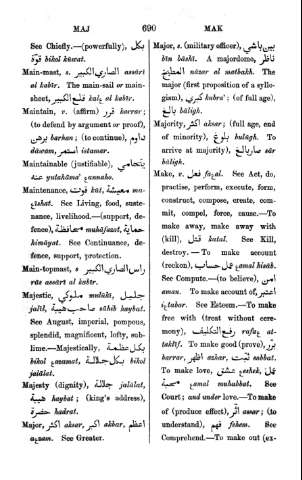 MAJ 690 MAK
See Chiefly.—(powerfully), بكل
bikol kûwat.
Main-mast, s. الصاري الكبير assârî
al kabîr. The main-sail or main-
sheet, قلع الكبير kalع al kabîr.
Maintain, v. (affirm) قرر karrar;
(to defend by argument or proof),
برهن barhan; (to continue), داوم
dâwam, استمر istamar.
Maintainable (justifiable), يتحامي
عنه yutahâma' عannaho.
Maintenance, قوت kût, معيشة ma-
عîshat. See Living, food, suste-
nance, livelihood.—(support, de-
fence), محافظة muhâfazat, حماية
himâyat. See Continuance, de-
fence, support, protection.
Main-topmast, s. راس الصاري الكبير
râs assârî al kabîr.
Majestic, ملوكي mulûkî, جليل
jalîl, صاحب هيبة sâhib haybat.
See August, imperial, pompous,
splendid, magnificent, lofty, sub-
lime.—Majestically, بكل عظمة
bikol عazamat, بكل جلالة bikol
jalâlat.
Majesty (dignity), جلالة jalâlat,
هيبة haybat; (king's address),
حضرة hadrat.
Major, اكثر aksar, اكبر akbar, اعظم
aعzam. See Greater.
Major, s. (military officer), بين باشي
bîn bâshî. A majordomo, ناظر
المطبخ nâzar al matbakh. The
major (first proposition of a syllo-
gism), كبري kubra'; (of full age),
بالغ bâligh.
Majority, اكثر aksar; (full age, end
of minority), بلوغ bulûgh. To
arrive at majority), صار بالغ sâr
bâligh.
Make, v. فعل faعal. See Act, do,
practise, perform, execute, form,
construct, compose, create, com-
mit, compel, force, cause.—To
make away, make away with
(kill), قتل katal. See Kill,
destroy.—To make account
(reckon), عمل حساب عamal hisâb.
See Compute.—(to believe), امن
aman. To make account of, اعتبر
iعtabar. See Esteem.—To make
free with (treat without cere-
mony), رفع التكليف rafaع at-
taklîf. To make good (prove), برر
barrar, اظهر azhar, ثبت sabbat.
To make love, عشق عeshek, عمل
محبة عamal muhabbat. See
Court; and under love.—To make
of (produce effect), اثر asar; (to
understand), فهم fehem. See
Comprehend.—To make out (ex-